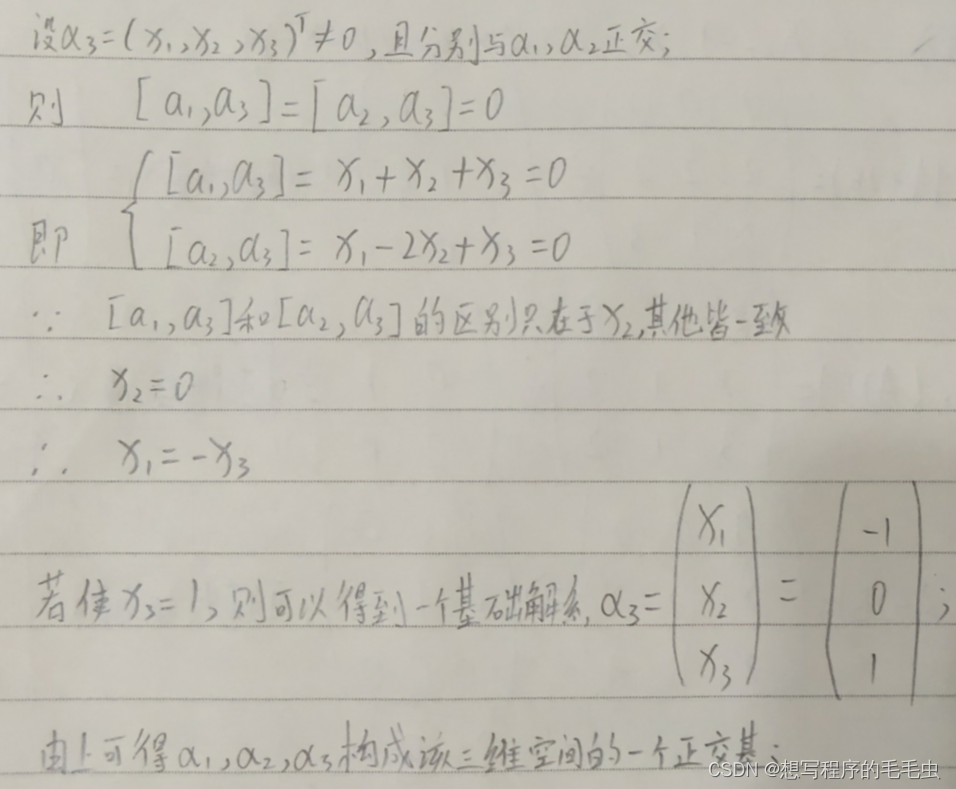 设α₃=(x₁,x₂,x₃)ᵀ≠0,且分别与α₁,α₂正交;
则 [a₁,a₃]=[a₂,a₃]=0
[a₁,a₃]=x₁+x₂+x₃=0
即 { [a₂,a₃]=x₁-2x₂+x₃=0
∵ [a₁,a₃]和[a₂,a₃]的区别只在于x₂,其他皆一致
∴ x₂=0
∴ x₁=-x₃
若使x₃=1,则可以得到一个基础解系,α₃=(x₁ x₂ x₃)=(-1 0 1);
由上可得α₁,α₂,α₃构成该三维空间的一个正交基;
CSDN @想写程序的毛毛虫